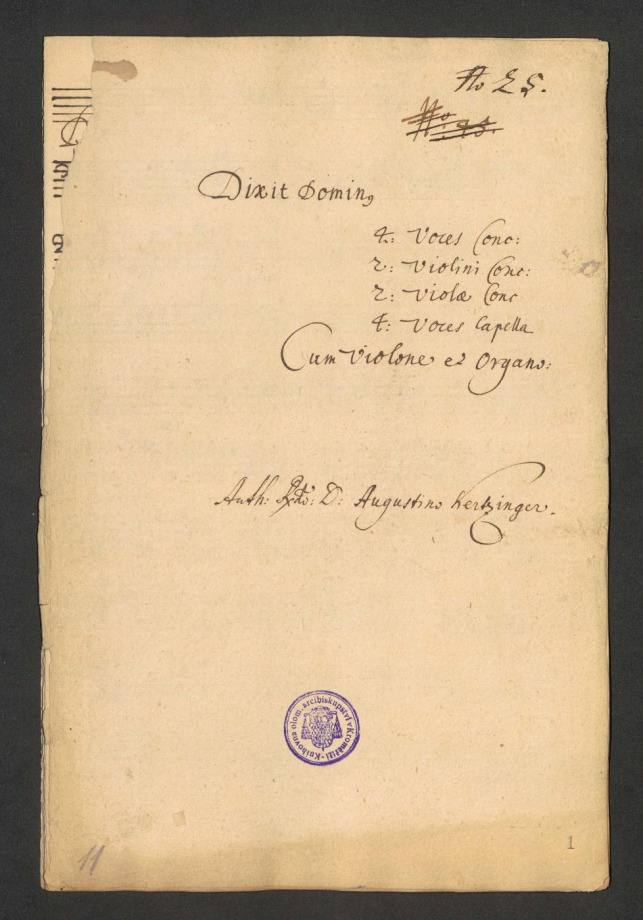 No 25.
No: 45.
Dixit Dominꝰ
4: Voces Conc:
2: Violini Conc:
2: Violæ Conc
4: Voces Capella
Cum Violone et Organo:
Auth: Rdo: D: Augustino Kertzinger.
Knihovna olom. arcibiskupství v Kroměříži
11
1